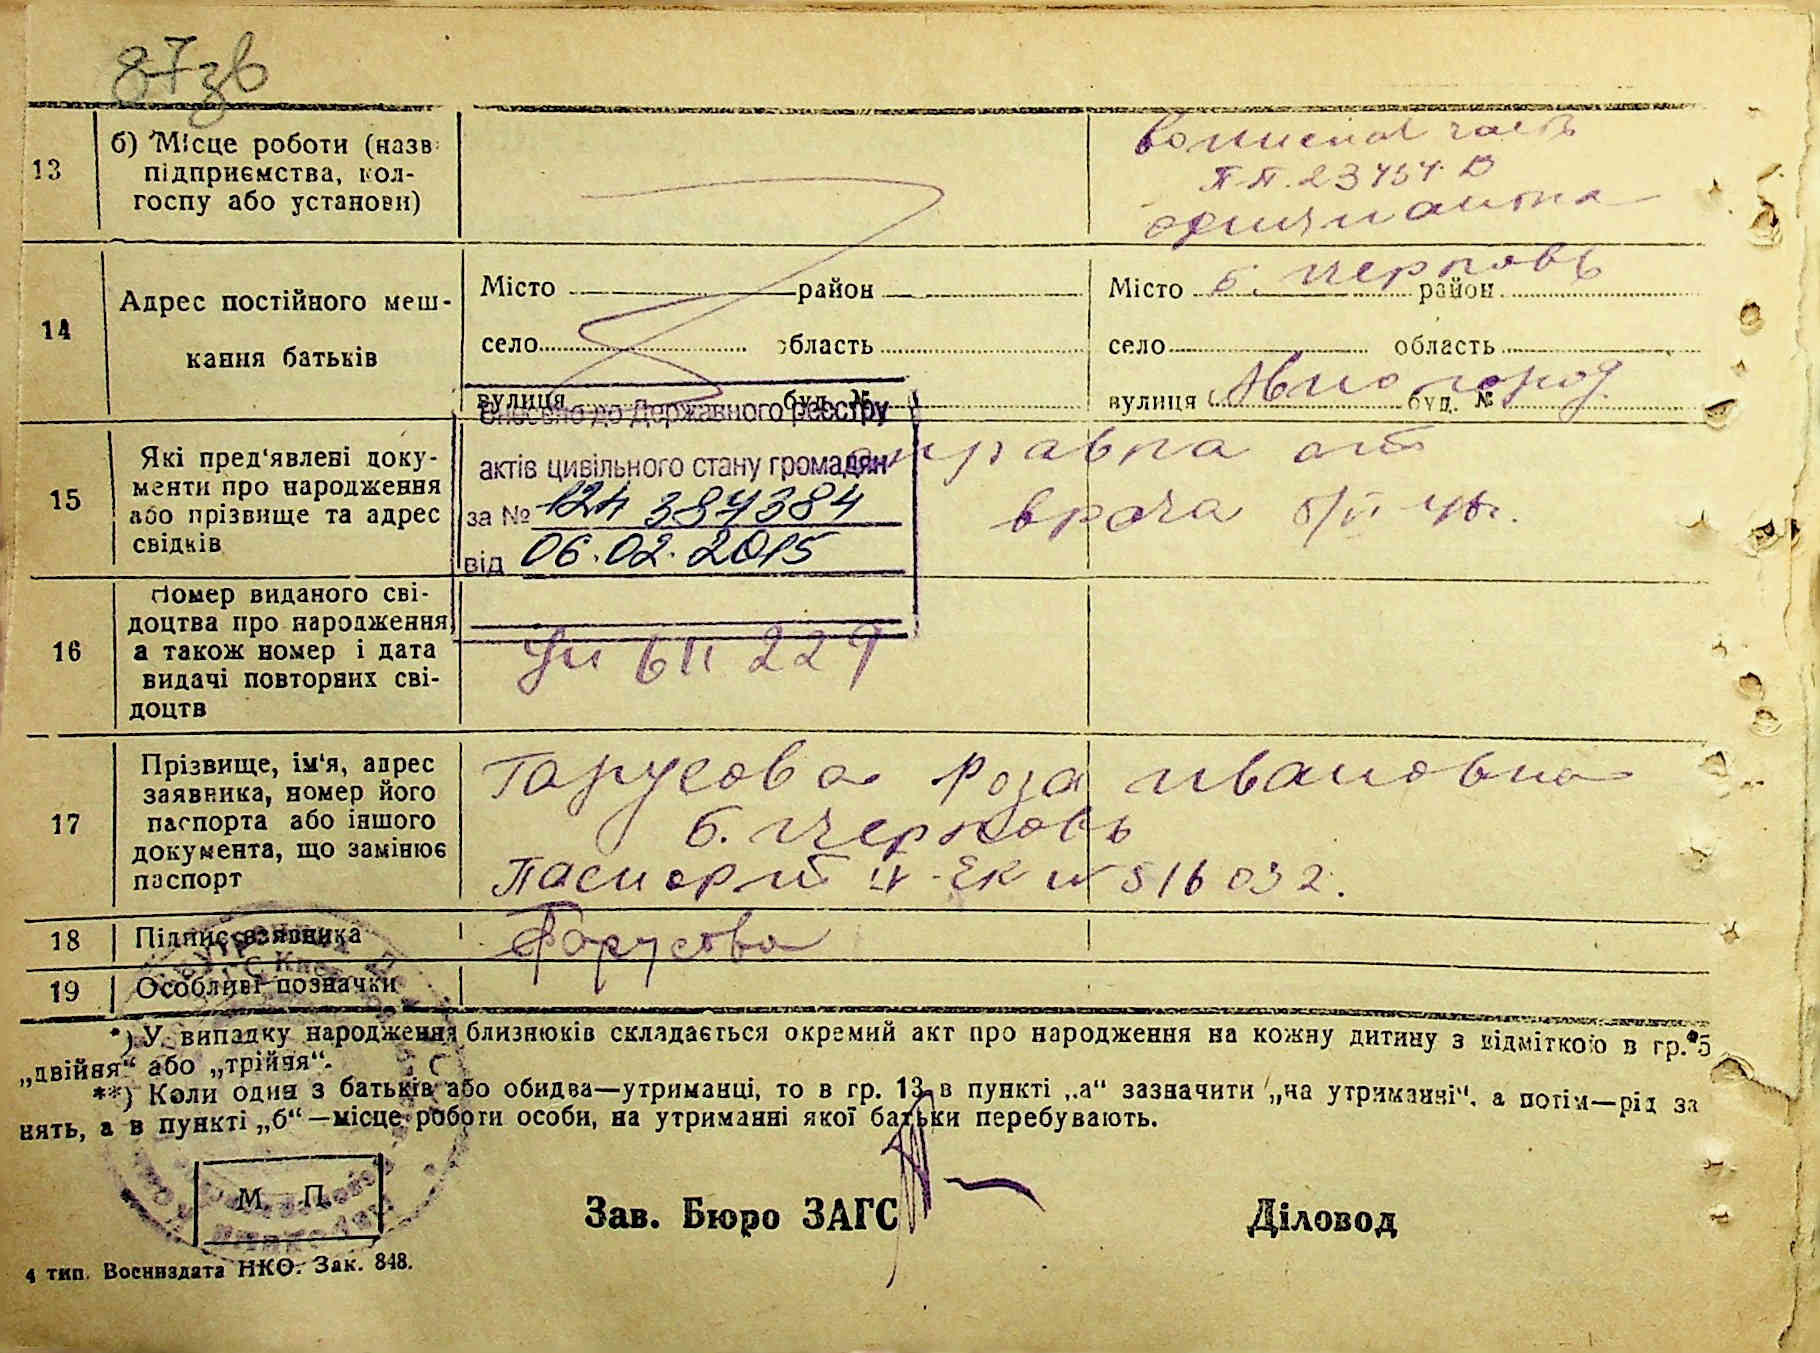 87зв
13
б) Місце роботи (назв
підприємства, кол-
госпу або установи)
часть
п.п.
14
Адрес постійного меш-
кання батьків
Місто район
село область
вулиця буд. №
Місто б. церковь район
село область
вулиця Авиогород буд. №
15
Які пред'явлені доку-
менти про народження
або прізвище та адрес
свідків
Внесено до Державного реєстру
актів цивільного стану громадян
за №
від 06.02.2015
справка от
врача
16
Номер виданого сві-
доцтва про народження
а також номер і дата
видачі повторних сві-
доцтв
17
Прізвище, ім'я, адрес
заявника, номер його
паспорта або іншого
документа, що замінює
паспорт
Гарусова Роза Ивановна
б. церковь
Паспорт
18
Підпис заявника
Гарусова
19
Особливі позначки
*) У випадку народження близнюків складається окремий акт про народження на кожну дитину з відміткою в гр. 5
„двійня“ або „трійня“.
**) Коли один з батьків або обидва—утриманці, то в гр. 13 в пункті „а“ зазначити „на утриманні“, а потім—рід за
нять, а в пункті „б“—місце роботи особи, на утриманні якої батьки перебувають.
М П
Зав. Бюро ЗАГС
Діловод
4 тип. Воениздата НКО. Зак. 848.